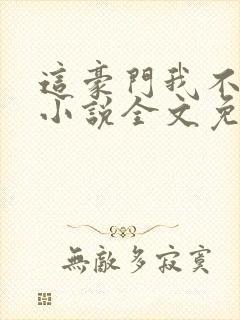 這豪門我不
小說全文免
無敵多寂寞